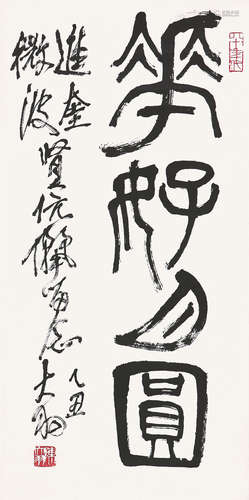 花好月圓
進奎
微波賢伉儷留念
乙丑
大羽